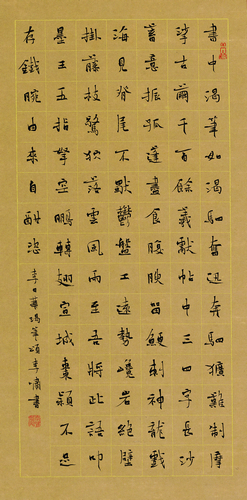 書中渴筆如渴馳奮迅奔馳獷難制摩
挲古繭千百餘羲獻帖中三四字長沙
蓄意振孤蓬盡食腹腴留鯁刺神龍戲
海見脊尾不鬱盤工遠勢巉岩絕壁
掛藤枝驚狖落雲風雨至吾將此語叩
墨王五指擘空鵬轉翅宣城棗穎不足
存鐵腕由來自酣恣 李日華渴筆頌 李嘯書